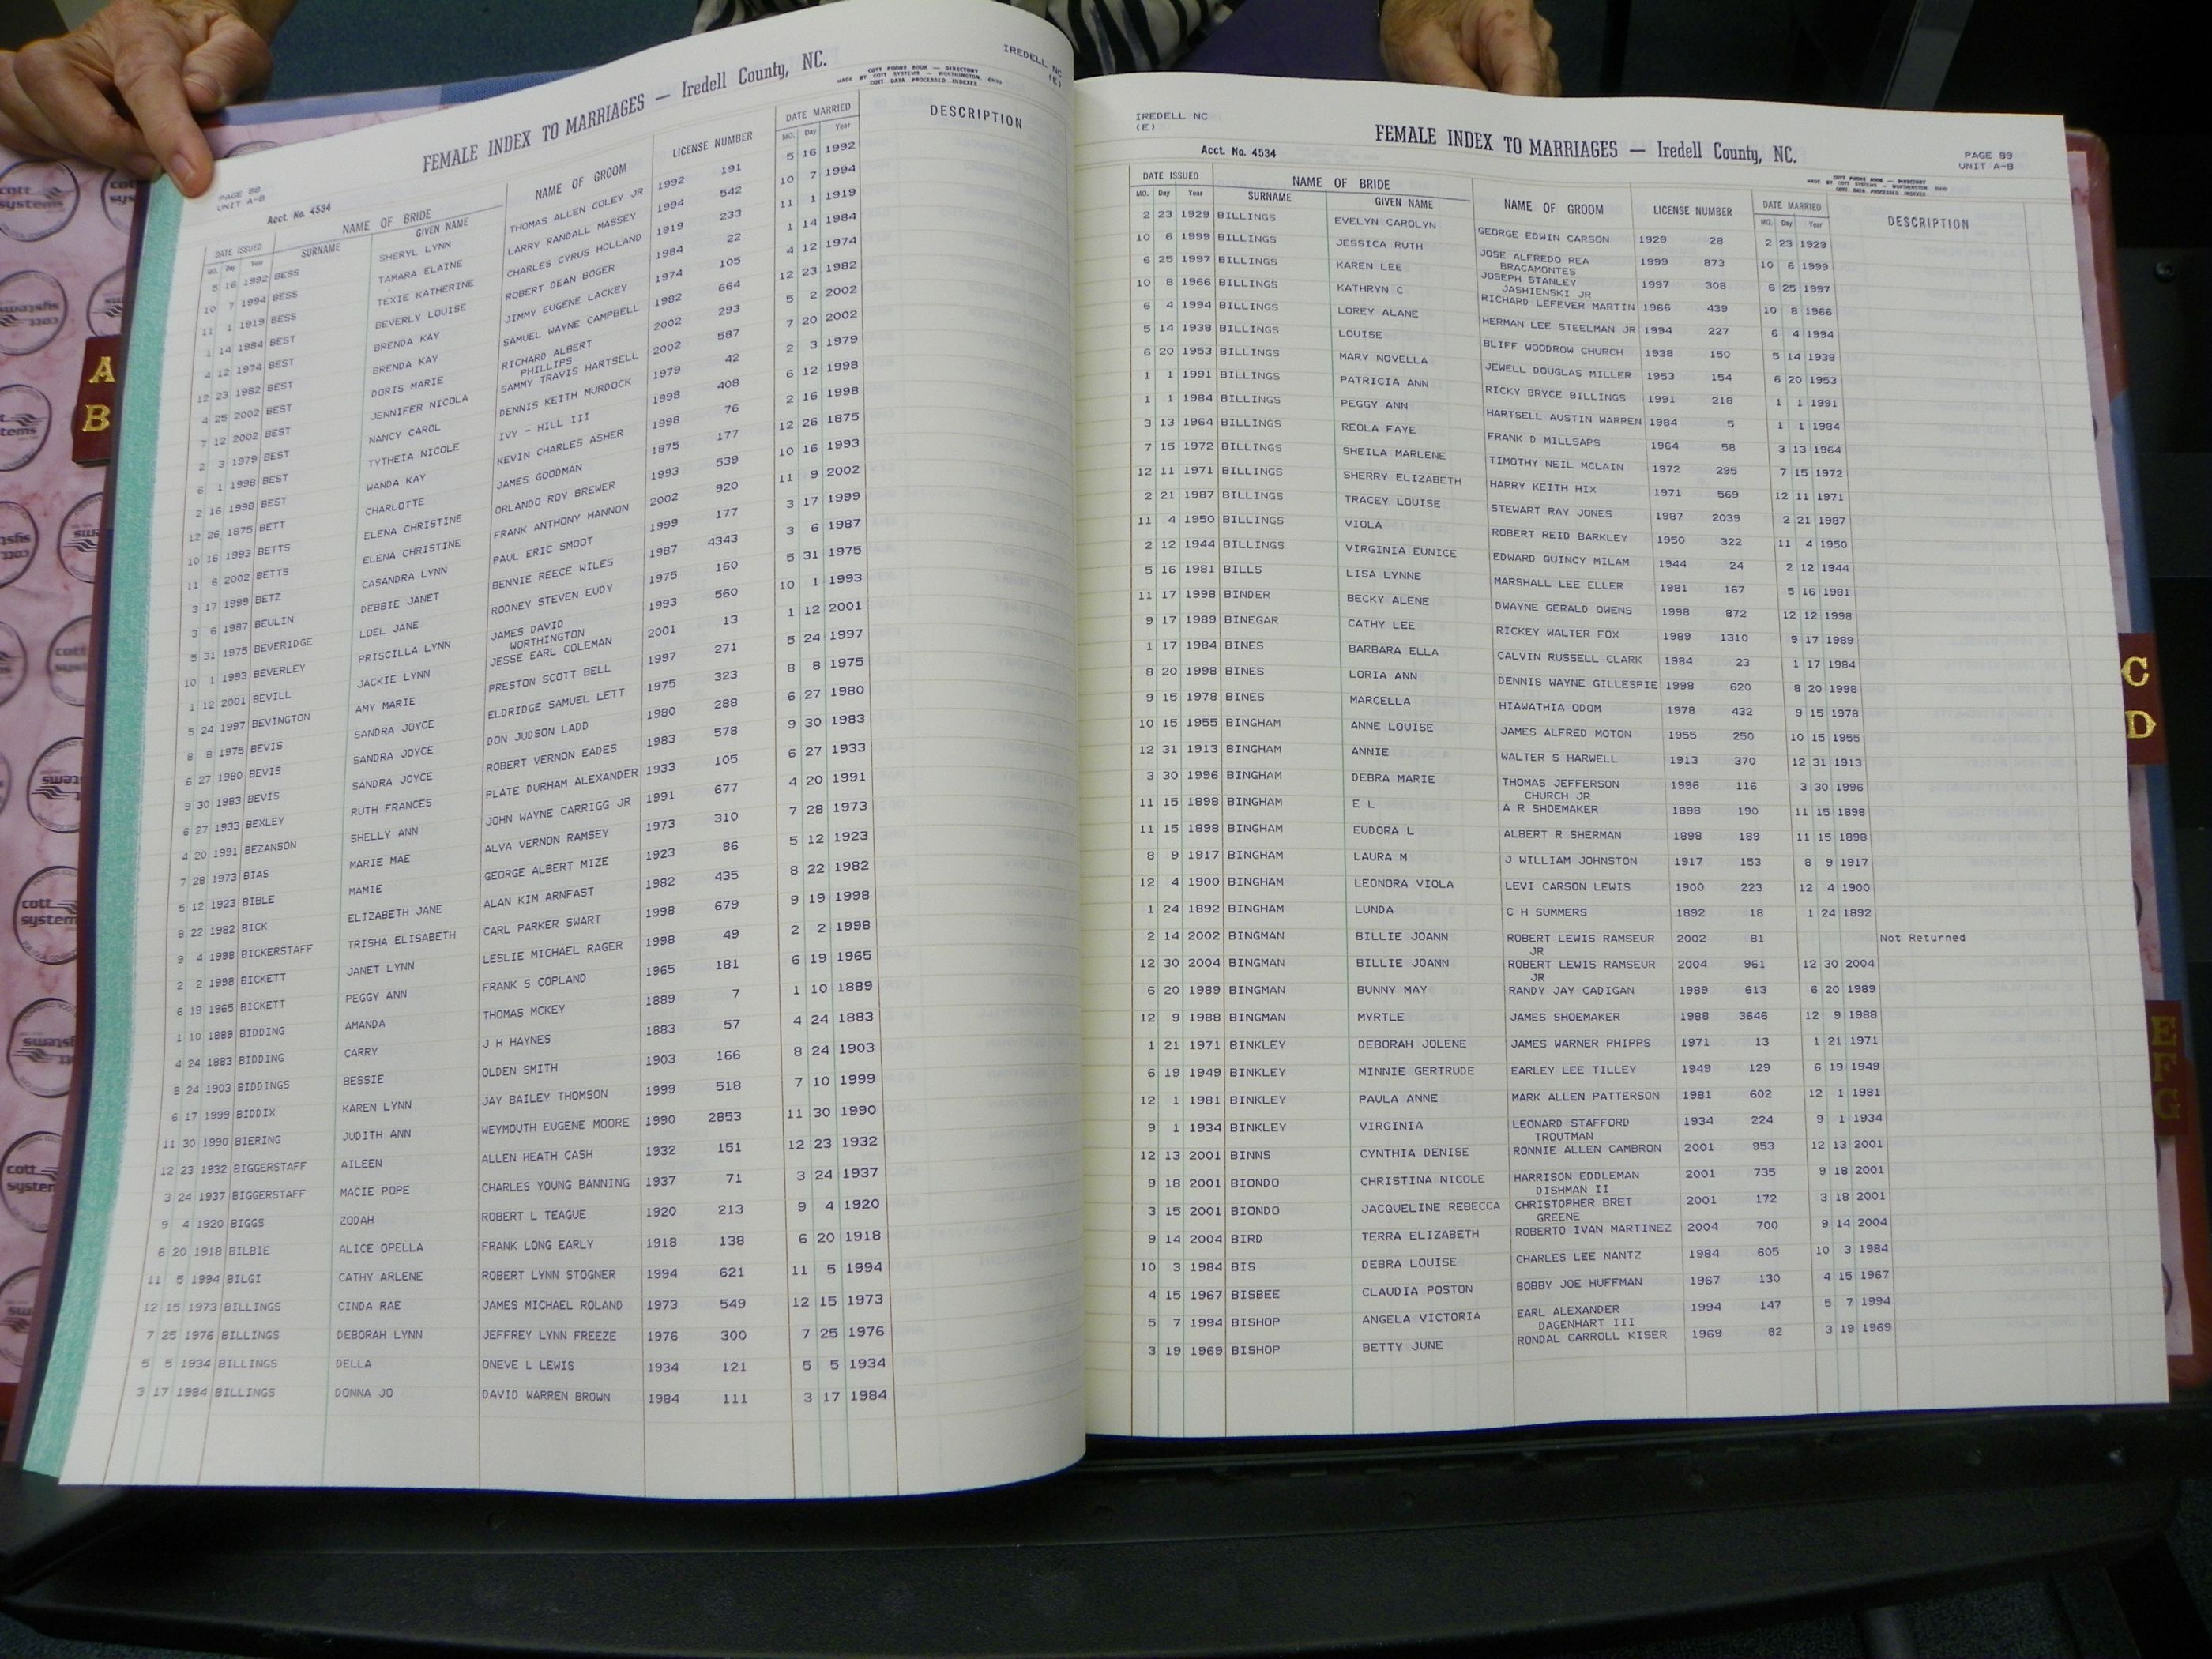 PAGE 88
UNIT A-B
Acct. No. 4534
FEMALE INDEX TO MARRIAGES — Iredell County, NC.
COTT PHONE BOOK — DIRECTORY
MADE BY COTT SYSTEMS — WORTHINGTON, OHIO
COTT DATA PROCESSED INDEXES
IREDELL NC
(E)
DATE ISSUED NAME OF BRIDE NAME OF GROOM LICENSE NUMBER DATE MARRIED DESCRIPTION
MO. Day Year SURNAME GIVEN NAME MO. Day Year
5 16 1992 BESS SHERYL LYNN THOMAS ALLEN COLEY JR 1992 191 5 16 1992
10 7 1994 BESS TAMARA ELAINE LARRY RANDALL MASSEY 1994 542 10 7 1994
11 1 1919 BESS TEXIE KATHERINE CHARLES CYRUS HOLLAND 1919 233 11 1 1919
1 14 1984 BEST BEVERLY LOUISE ROBERT DEAN BOGER 1984 22 1 14 1984
4 12 1974 BEST BRENDA KAY JIMMY EUGENE LACKEY 1974 105 4 12 1974
12 23 1982 BEST BRENDA KAY SAMUEL WAYNE CAMPBELL 1982 664 12 23 1982
4 25 2002 BEST DORIS MARIE RICHARD ALBERT 2002 293 5 2 2002
PHILLIPS
7 12 2002 BEST JENNIFER NICOLA SAMMY TRAVIS HARTSELL 2002 587 7 20 2002
2 3 1979 BEST NANCY CAROL DENNIS KEITH MURDOCK 1979 42 2 3 1979
6 1 1998 BEST TYTHEIA NICOLE IVY - HILL III 1998 408 6 12 1998
2 16 1998 BEST WANDA KAY KEVIN CHARLES ASHER 1998 76 2 16 1998
12 26 1875 BETT CHARLOTTE JAMES GOODMAN 1875 177 12 26 1875
10 16 1993 BETTS ELENA CHRISTINE ORLANDO ROY BREWER 1993 539 10 16 1993
11 6 2002 BETTS ELENA CHRISTINE FRANK ANTHONY HANNON 2002 920 11 9 2002
3 17 1999 BETZ CASANDRA LYNN PAUL ERIC SMOOT 1999 177 3 17 1999
3 6 1987 BEULIN DEBBIE JANET BENNIE REECE WILES 1987 4343 3 6 1987
5 31 1975 BEVERIDGE LOEL JANE RODNEY STEVEN EUDY 1975 160 5 31 1975
10 1 1993 BEVERLEY PRISCILLA LYNN JAMES DAVID 1993 560 10 1 1993
WORTHINGTON
1 12 2001 BEVILL JACKIE LYNN JESSE EARL COLEMAN 2001 13 1 12 2001
5 24 1997 BEVINGTON AMY MARIE PRESTON SCOTT BELL 1997 271 5 24 1997
8 8 1975 BEVIS SANDRA JOYCE ELDRIDGE SAMUEL LETT 1975 323 8 8 1975
6 27 1980 BEVIS SANDRA JOYCE DON JUDSON LADD 1980 288 6 27 1980
9 30 1983 BEVIS SANDRA JOYCE ROBERT VERNON EADES 1983 578 9 30 1983
6 27 1933 BEXLEY RUTH FRANCES PLATE DURHAM ALEXANDER 1933 105 6 27 1933
4 20 1991 BEZANSON SHELLY ANN JOHN WAYNE CARRIGG JR 1991 677 4 20 1991
7 28 1973 BIAS MARIE MAE ALVA VERNON RAMSEY 1973 310 7 28 1973
5 12 1923 BIBLE MAMIE GEORGE ALBERT MIZE 1923 86 5 12 1923
8 22 1982 BICK ELIZABETH JANE ALAN KIM ARNFAST 1982 435 8 22 1982
9 4 1998 BICKERSTAFF TRISHA ELISABETH CARL PARKER SWART 1998 679 9 19 1998
2 2 1998 BICKETT JANET LYNN LESLIE MICHAEL RAGER 1998 49 2 2 1998
6 19 1965 BICKETT PEGGY ANN FRANK S COPLAND 1965 181 6 19 1965
1 10 1889 BIDDING AMANDA THOMAS MCKEY 1889 7 1 10 1889
4 24 1883 BIDDING CARRY J H HAYNES 1883 57 4 24 1883
8 24 1903 BIDDINGS BESSIE OLDEN SMITH 1903 166 8 24 1903
6 17 1999 BIDDIX KAREN LYNN JAY BAILEY THOMSON 1999 518 7 10 1999
11 30 1990 BIERING JUDITH ANN WEYMOUTH EUGENE MOORE 1990 2853 11 30 1990
12 23 1932 BIGGERSTAFF AILEEN ALLEN HEATH CASH 1932 151 12 23 1932
3 24 1937 BIGGERSTAFF MACIE POPE CHARLES YOUNG BANNING 1937 71 3 24 1937
9 4 1920 BIGGS ZODAH ROBERT L TEAGUE 1920 213 9 4 1920
6 20 1918 BILBIE ALICE OPELLA FRANK LONG EARLY 1918 138 6 20 1918
11 5 1994 BILGI CATHY ARLENE ROBERT LYNN STOGNER 1994 621 11 5 1994
12 15 1973 BILLINGS CINDA RAE JAMES MICHAEL ROLAND 1973 549 12 15 1973
7 25 1976 BILLINGS DEBORAH LYNN JEFFREY LYNN FREEZE 1976 300 7 25 1976
5 5 1934 BILLINGS DELLA ONEVE L LEWIS 1934 121 5 5 1934
3 17 1984 BILLINGS DONNA JO DAVID WARREN BROWN 1984 111 3 17 1984
IREDELL NC
(E)
Acct. No. 4534
FEMALE INDEX TO MARRIAGES — Iredell County, NC.
PAGE 89
UNIT A-B
COTT PHONE BOOK — DIRECTORY
MADE BY COTT SYSTEMS — WORTHINGTON, OHIO
COTT DATA PROCESSED INDEXES
DATE ISSUED NAME OF BRIDE NAME OF GROOM LICENSE NUMBER DATE MARRIED DESCRIPTION
MO. Day Year SURNAME GIVEN NAME MO. Day Year
2 23 1929 BILLINGS EVELYN CAROLYN GEORGE EDWIN CARSON 1929 28 2 23 1929
10 6 1999 BILLINGS JESSICA RUTH JOSE ALFREDO REA 1999 873 10 6 1999
BRACAMONTES
6 25 1997 BILLINGS KAREN LEE JOSEPH STANLEY 1997 308 6 25 1997
JASHIENSKI JR
10 8 1966 BILLINGS KATHRYN C RICHARD LEFEVER MARTIN 1966 439 10 8 1966
6 4 1994 BILLINGS LOREY ALANE HERMAN LEE STEELMAN JR 1994 227 6 4 1994
5 14 1938 BILLINGS LOUISE BLIFF WOODROW CHURCH 1938 150 5 14 1938
6 20 1953 BILLINGS MARY NOVELLA JEWELL DOUGLAS MILLER 1953 154 6 20 1953
1 1 1991 BILLINGS PATRICIA ANN RICKY BRYCE BILLINGS 1991 218 1 1 1991
1 1 1984 BILLINGS PEGGY ANN HARTSELL AUSTIN WARREN 1984 5 1 1 1984
3 13 1964 BILLINGS REOLA FAYE FRANK D MILLSAPS 1964 58 3 13 1964
7 15 1972 BILLINGS SHEILA MARLENE TIMOTHY NEIL MCLAIN 1972 295 7 15 1972
12 11 1971 BILLINGS SHERRY ELIZABETH HARRY KEITH HIX 1971 569 12 11 1971
2 21 1987 BILLINGS TRACEY LOUISE STEWART RAY JONES 1987 2039 2 21 1987
11 4 1950 BILLINGS VIOLA ROBERT REID BARKLEY 1950 322 11 4 1950
2 12 1944 BILLINGS VIRGINIA EUNICE EDWARD QUINCY MILAM 1944 24 2 12 1944
5 16 1981 BILLS LISA LYNNE MARSHALL LEE ELLER 1981 167 5 16 1981
11 17 1998 BINDER BECKY ALENE DWAYNE GERALD OWENS 1998 872 12 12 1998
9 17 1989 BINEGAR CATHY LEE RICKEY WALTER FOX 1989 1310 9 17 1989
1 17 1984 BINES BARBARA ELLA CALVIN RUSSELL CLARK 1984 23 1 17 1984
8 20 1998 BINES LORIA ANN DENNIS WAYNE GILLESPIE 1998 620 8 20 1998
9 15 1978 BINES MARCELLA HIAWATHIA ODOM 1978 432 9 15 1978
10 15 1955 BINGHAM ANNE LOUISE JAMES ALFRED MOTON 1955 250 10 15 1955
12 31 1913 BINGHAM ANNIE WALTER S HARWELL 1913 370 12 31 1913
3 30 1996 BINGHAM DEBRA MARIE THOMAS JEFFERSON 1996 116 3 30 1996
CHURCH JR
11 15 1898 BINGHAM E L A R SHOEMAKER 1898 190 11 15 1898
11 15 1898 BINGHAM EUDORA L ALBERT R SHERMAN 1898 189 11 15 1898
8 9 1917 BINGHAM LAURA M J WILLIAM JOHNSTON 1917 153 8 9 1917
12 4 1900 BINGHAM LEONORA VIOLA LEVI CARSON LEWIS 1900 223 12 4 1900
1 24 1892 BINGHAM LUNDA C H SUMMERS 1892 18 1 24 1892
2 14 2002 BINGMAN BILLIE JOANN ROBERT LEWIS RAMSEUR 2002 81 Not Returned
JR
12 30 2004 BINGMAN BILLIE JOANN ROBERT LEWIS RAMSEUR 2004 961 12 30 2004
JR
6 20 1989 BINGMAN BUNNY MAY RANDY JAY CADIGAN 1989 613 6 20 1989
12 9 1988 BINGMAN MYRTLE JAMES SHOEMAKER 1988 3646 12 9 1988
1 21 1971 BINKLEY DEBORAH JOLENE JAMES WARNER PHIPPS 1971 13 1 21 1971
6 19 1949 BINKLEY MINNIE GERTRUDE EARLEY LEE TILLEY 1949 129 6 19 1949
12 1 1981 BINKLEY PAULA ANNE MARK ALLEN PATTERSON 1981 602 12 1 1981
9 1 1934 BINKLEY VIRGINIA LEONARD STAFFORD 1934 224 9 1 1934
TROUTMAN
12 13 2001 BINNS CYNTHIA DENISE RONNIE ALLEN CAMBRON 2001 953 12 13 2001
9 18 2001 BIONDO CHRISTINA NICOLE HARRISON EDDLEMAN 2001 735 9 18 2001
DISHMAN II
3 15 2001 BIONDO JACQUELINE REBECCA CHRISTOPHER BRET 2001 172 3 18 2001
GREENE
9 14 2004 BIRD TERRA ELIZABETH ROBERTO IVAN MARTINEZ 2004 700 9 14 2004
10 3 1984 BIS DEBRA LOUISE CHARLES LEE NANTZ 1984 605 10 3 1984
4 15 1967 BISBEE CLAUDIA POSTON BOBBY JOE HUFFMAN 1967 130 4 15 1967
5 7 1994 BISHOP ANGELA VICTORIA EARL ALEXANDER 1994 147 5 7 1994
DAGENHART III
3 19 1969 BISHOP BETTY JUNE RONDAL CARROLL KISER 1969 82 3 19 1969
A
B
C
D
E
F
G
cott
systems